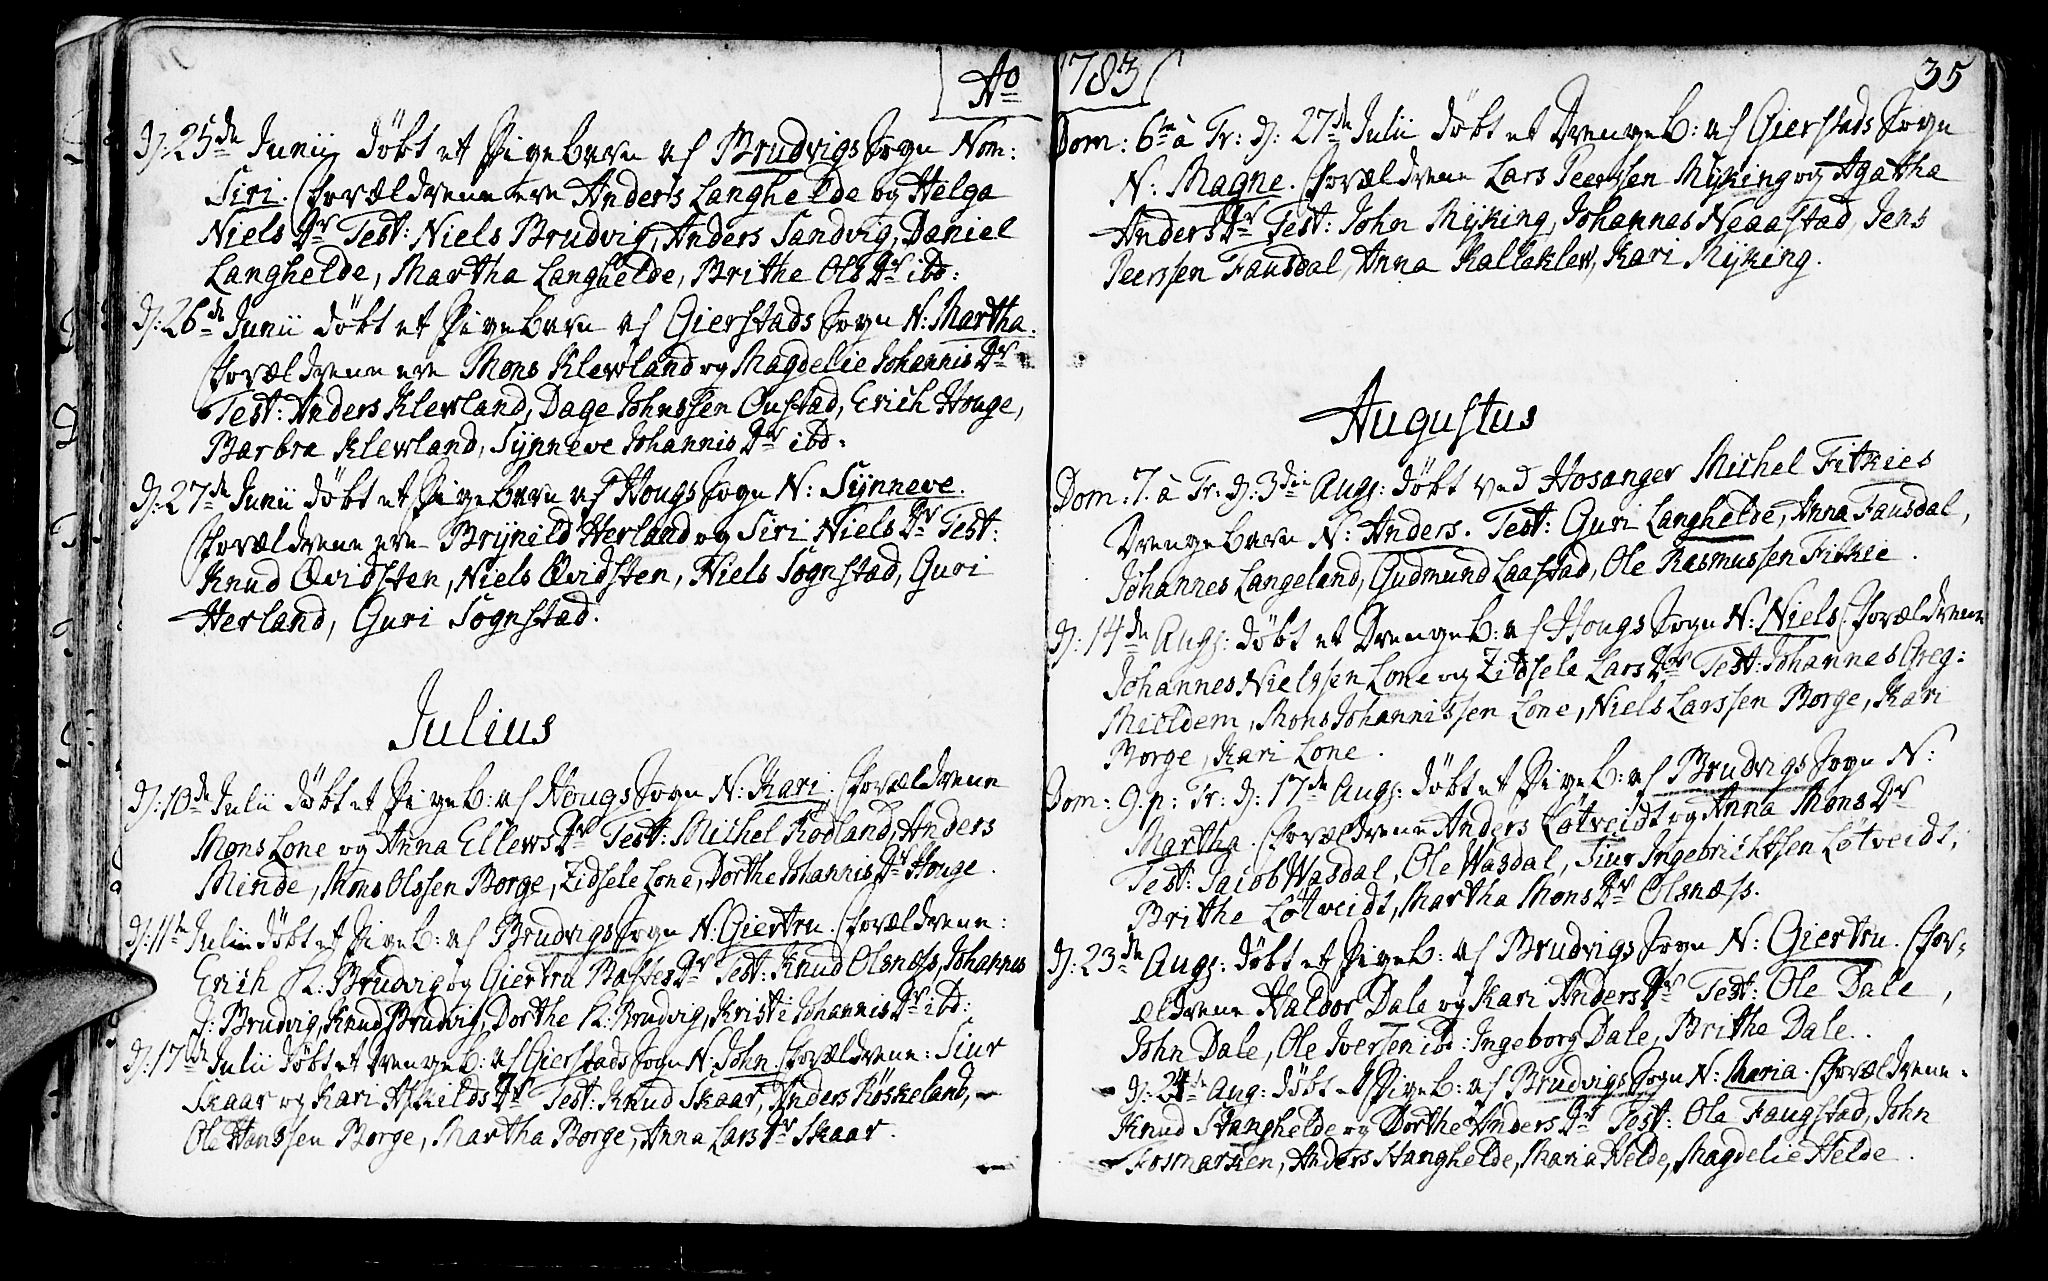 Ao
D: 25de Junii döbt et Pigebarn af Brudvigs Sogn Nom:
Siri. Forældrene ere Anders Langhelde og Helga
Niels Dr Test: Niels Brudvig, Anders Sandvig, Daniel
Langhelde, Martha Langhelde, Brithe Ols Dr ibd:
D: 26de Junii döbt et Pigebarn af Gierstads Sogn N: Martha.
Forældrene ere Mons Klevland og Magdelie Johannis Dr
Test: Anders Klevland, Dage Johnssen Oustad, Erich Houge,
Barbra Klevland, Sÿnneve Johannis Dr ibd:
D: 27de Junii döbt et Pigebarn af Hougs Sogn N: Sÿnneve.
Forældrene ere Brÿnild Herland og Siri Niels Dr Test:
Knud Qvidsten, Niels Qvidsten, Niels Sognstad, Guri
Herland, Guri Sognstad.
Julius
D: 10de Julii döbt et Pigeb: af Hougs Sogn N: Kari. Forældrene
Mons Lone og Anna Ellews Dr Test: Michel Rödland, Anders
Minde, Mons Olssen Borge, Zidsele Lone, Dorthe Johannis Dr Houge.
D: 11te Julii döbt et Pigeb: af Brudvigs Sogn N: Giertru. Forældrene:
Erich K: Brudvig og Giertru Basses Dr Test: Knud Olsnæss, Johannes
J: Brudvig, Knud Brudvig, Dorthe K: Brudvig, Kristi Johannis Dr ibd:
D: 17de Julii döbt et Drengeb: af Gierstads Sogn N: John Forældrene: Siur
Skaar og Kari Askilds Dr Test: Knud Skaar, Anders Röskeland,
Ole Hanssen Borge, Martha Borge, Anna Lars Dr Skaar.
1783
35
Dom: 6te à Tr: D: 27de Julii döbt et Drengeb: af Gierstads Sogn
N: Magne. Forældrene Lars Peerssen Mÿking og Agatha
Anders Dr Test: John Mÿking, Johannes Neaastad, Jens
Peerssen Fausdal, Anna Kalleklev, Kari Mÿking.
Augustus
Dom: 7. à Tr: D: 3die Aug: döbt ved Hosanger Michel Fitkies
Drengebarn N: Anders. Test: Guri Langhelde, Anna Fausdal,
Johannes Langeland, Gudmund Laastad, Ole Rasmussen Fitkie.
D: 14de Aug: döbt et Drengeb: af Hougs Sogn N: Niels Forældrene
Johannes Nielssen Lone og Zidsele Lars Dr Test: Johannes Greg:
Mieldem, Mons Johannissen Lone, Niels Larssen Borge, Kari
Borge, Kari Lone.
Dom: 9. p: Tr: D: 17de Aug: döbt et Pigeb: af Brudvigs Sogn N:
Martha. Forældrene Anders Lötveidt og Anna Mons Dr
Test: Jacob Wasdal, Ole Wasdal, Siur Ingebrichtsen Lötveidt,
Brithe Lötveidt, Martha Mons Dr Olsnæss.
D: 23de Aug: döbt et Pigeb: af Brudvigs Sogn N: Giertru. For-
ældrene Haldor Dale og Kari Anders Dr Test: Ole Dale,
John Dale, Ole Iversen ibd: Ingeborg Dale, Brithe Dale.
D: 24de Aug: döbt et Pigeb: af Brudvigs Sogn N: Maria. Forældrene.
Knud Stanghelde og Dorthe Anders Dr Test: Ole Faugstad, John
Fosmarken, Anders Stanghelde, Maria Helde, Magdelie Helde.